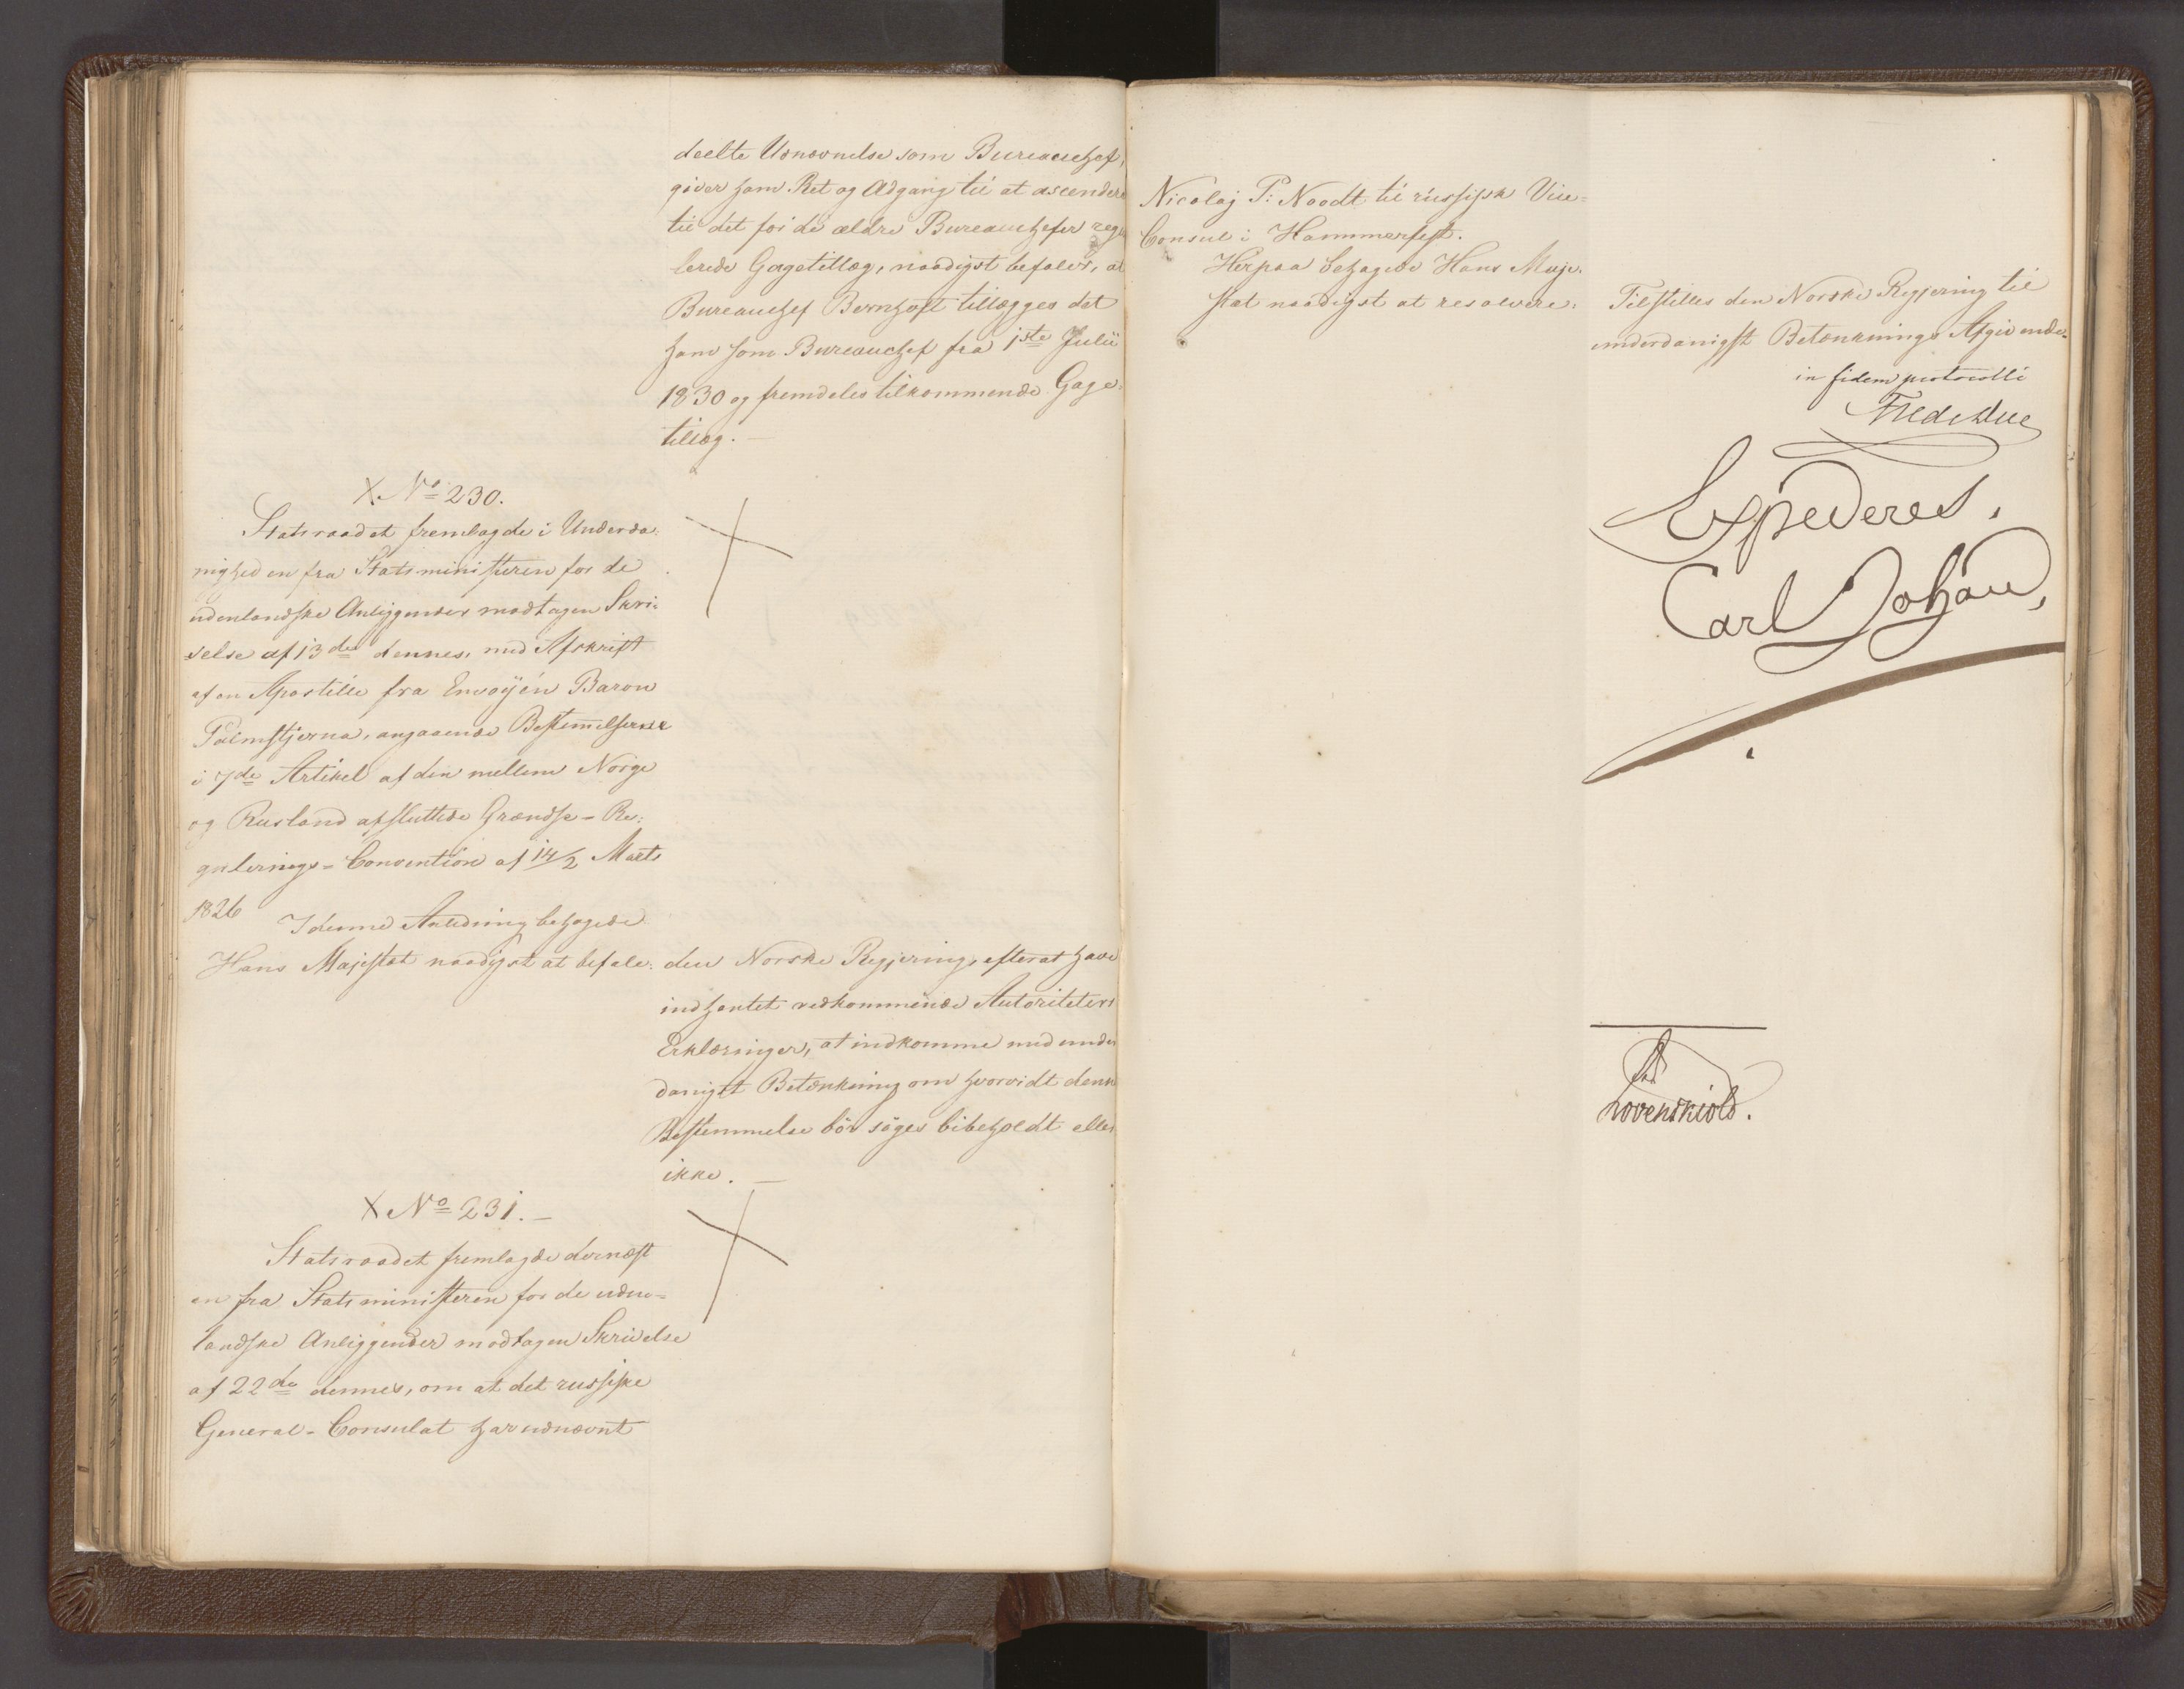 deelte Udnævnelse som Bureauchef,
giver ham Ret og Adgang til at ascendere
til det for de ældre Bureauchefer regu
lerede Gagetillæg, naadigst befaler, at
Bureauchef Bernhoft tillægges det
ham som Bureauchef fra 1ste Julii
1830 og fremdeles tilkommende Gage-
tillæg. —
X No 230.
Statsraadet fremlagde i Underda-
nighed en fra Statsministeren for de
udenlandske Anliggender modtagen Skri-
velse af 13de dennes, med Afskrift
af en Apostille fra Envoyén Baron
Palmstjerna, angaaende Bestemmelserne
i 7de Artikel af den mellem Norge
og Rusland afsluttede Grændse-Re-
gulerings-Convention af 14/2 Marts
1826
I denne Anledning behagede
Hans Majestæt naadigst at befale:
den Norske Regjering, efterat have
indhentet vedkommende Autoriteters
Erklæringer, at indkomme med under
danigst Betænkning om hvorvidt denne
Bestemmelse bör söges bibeholdt eller
ikke. —
X No 231. —
Statsraadet fremlagde dernæst
en fra Statsministeren for de uden-
landske Anliggender modtagen Skrivelse
af 22de dennes, om at det russiske
General-Consulat har udnævnt
Nicolaj P: Noodt til russisk Vice-
Consul i Hammerfest.
Herpaa behagede Hans Maje-
stæt naadigst at resolvere:
Tilstilles den Norske Regjering til
underdanigst Betænknings Afgivende.
in fidem protocolli
Fredr Due
Expederes,
Carl Johan,
Løvenskiold.